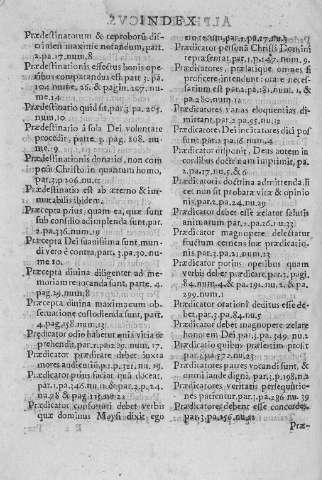 INDEX
Prædestinatorum & reproborũ dis-
crimen maximè notandum, part.
2. pa. 17. num. 8
Prædestinationis effectus bonis ope-
ribus comparandus est part. 3. pa.
104. nume. 26. & pagin. 207. nu-
me. 14
Prædestinatio quid sit, par. 3. pa. 205.
num. 10
Prædestinatio à sola Dei voluntate
procedit, parte. 3. pag. 208. nu-
me. 19
Prædestinationis donatio, non com
petit Christo in quantum homo,
par. 3. pa. 206. nu. 12
Prædestinatio est ab æterno & im-
mutabilis ibidem.
Præcepta prius, quam ea, quæ sunt
sub consilio adimplenda sunt, par.
2. pa. 336. num. 19
Præcepta Dei suauissima sunt, mun-
di vero è contra, part. 3. pa. 30. nu-
me. 10
Præcepta diuina diligenter ad me-
moriam reuocanda sunt, parte. 4.
pag. 29. num. 8
Præcepta diuina maximeum ob-
seruatione custodienda sunt, part.
4. pag. 158. num. 13
Prædicator odio habetur quia vitia re
prehendit, par. 1. pa. 29. num. 17
Prædicator prædicare debet iuxta
mores audientiũ, pa. 1. p. 121. nu. 19
Prædicator prius faciat, quã doceat,
par. 1. pa. 346. nu. 11. & par. 2. p. 24.
nu. 28 & pag. 115. nu. 21
Prædicator conformari debet verbis
quæ dominus Moysi dixit ego
ero tecum, par. 1. pa. 17. nu. 3
Prædicator personã Christi Domini
repræsentat, par. 1. p. 147. num. 9
Prædicatores, prælatique omnes si
proficere intendunt: orare est ne-
cessarium est par. 1. pa. 181. num. 1. &
pa. 210. num. 12
Prædicatores vanas eloquentias di-
mittant, par. 2. pa. 95. nu. 12
Prædicatores Dei incitatores dici pos
sunt par. 2. pa. 16. num. 4
Prædicator disponit, Deus autem in
cordibus doctrinam imprimit, pa.
2. pa. 17. nu. 5. & 6
Prædicatoris doctrina admittenda li
cet non sit probatæ vitæ & opinio
nis, par. 2. pa. 29. nu. 24
Prædicator debet esse zelator salutis
animarum par. 2. pa. 26. nu. 33
Prædicator magnopere delectatur
fructum cernens suæ prædicatio-
nis par. 3. pa. 23. nu. 2
Prædicator potius operibus quam
verbis debet prædicare par. 3. pagi.
84. num. 4. & pa. 191. nu. 2. & pa.
299. num. 1
Prædicator orationi deditus esse de-
bet, par. 3. pa. 84. nu. 5
Prædicator debet magnopere zelare
honorem Dei par. 3. pa. 249. nu. 2
Prædicatio quibus præsertim prosit,
par. 3. pa. 372. nu. 23
Prædicatores patres vocandi sunt, &
omni laude digni, par. 3. p. 198. nu. 2
Prædicatores veritatis persequutio-
nes patiuntur, par. 3. pa. 226. nu. 2
Prædicatores debent esse concordes,
par. 3. pa. 256. nu. 21
Præ-